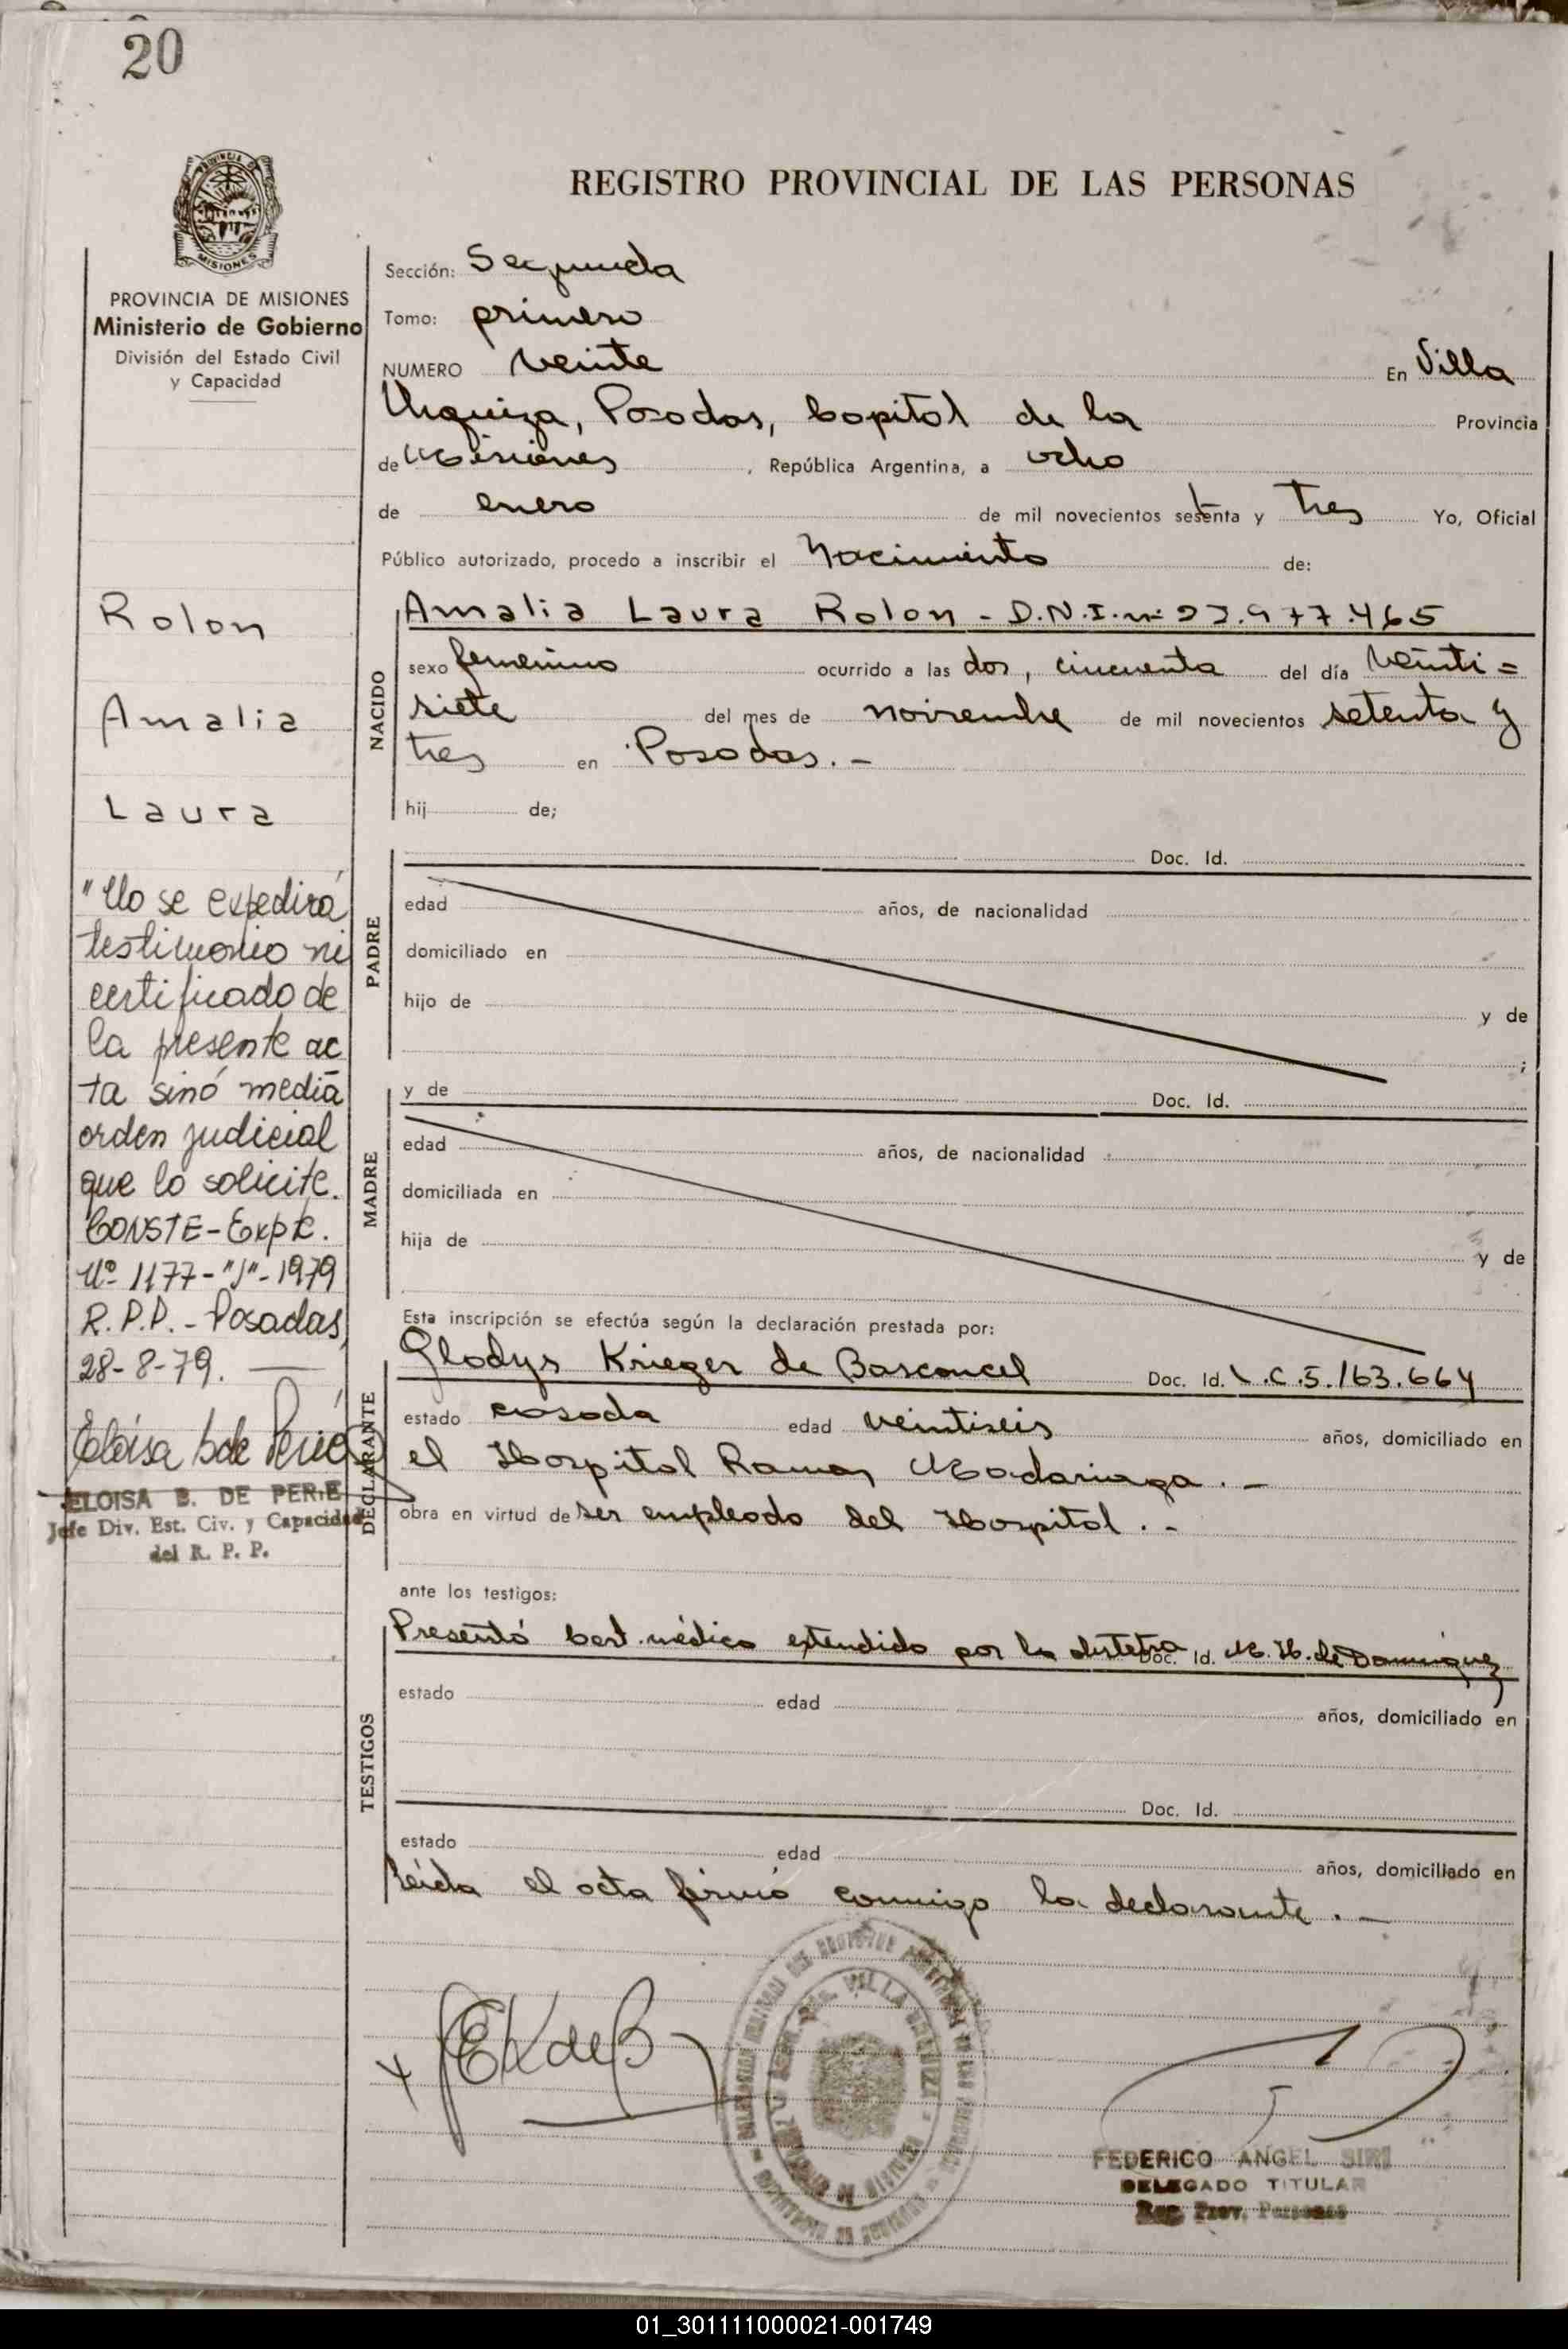 20
REGISTRO PROVINCIAL DE LAS PERSONAS
PROVINCIA DE MISIONES
Ministerio de Gobierno
División del Estado Civil
y Capacidad
Rolon
Amalia
Laura
"No se expedirá
testimonio ni
certificado de
la presente ac
ta sinó media
orden judicial
que lo solicite.
CONSTE-Expte.
Nº 1177-"J"-1979
R.P.P.-Posadas,
28-8-79.
ELOISA B. DE PERIE
Jefe Div. Est. Civ. y Capacidad
del R. P. P.
Sección: Segunda
Tomo: primero
NUMERO veinte En Villa
Urquiza, Posadas, Capital de la Provincia
de Misiones, República Argentina, a ocho
de enero de mil novecientos setenta y tres Yo, Oficial
Público autorizado, procedo a inscribir el Nacimiento de:
NACIDO
Amalia Laura Rolon - D.N.I. nº 23.977.465
sexo femenino ocurrido a las dos, cincuenta del día veinti=
siete del mes de noviembre de mil novecientos setenta y
tres en Posadas.-
hij de;
PADRE
Doc. Id.
edad años, de nacionalidad
domiciliado en
hijo de y de
;
MADRE
y de Doc. Id.
edad años, de nacionalidad
domiciliada en
hija de y de
Esta inscripción se efectúa según la declaración prestada por:
DECLARANTE
Gladys Krieger de Basconcel Doc. Id. L.C.5.163.664
estado casada edad veintiseis años, domiciliado en
el Hospital Ramon Madariaga.-
obra en virtud de ser empleada del Hospital.-
ante los testigos:
TESTIGOS
Presentó Cert. médico extendido por la obstetra Doc. Id. M. H. de Dominguez
estado edad años, domiciliado en
Doc. Id.
estado edad años, domiciliado en
Leída el acta firmó conmigo la declarante.-
GEKdeB
VILLA URQUIZA
FEDERICO ANGEL SIRI
DELEGADO TITULAR
Reg. Prov. Personas
01_301111000021-001749